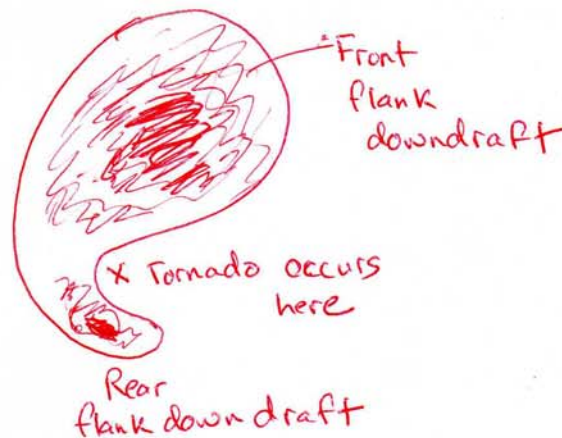 Front
flank
downdraft
x Tornado occurs
here
Rear
flank down draft